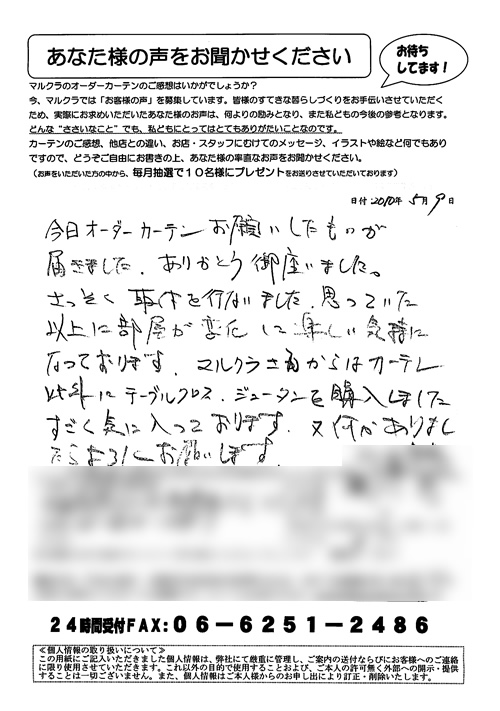 あなた様の声をお聞かせください
お待ち
してます!
マルクラのオーダーカーテンのご感想はいかがでしょうか?
今、マルクラでは「お客様の声」を募集しています。皆様のすてきな暮らしづくりをお手伝いさせていただく
ため、実際にお求めいただいたあなた様のお声は、何よりの励みとなり、また私どもの今後の参考となります。
どんな“ささいなこと”でも、私どもにとってはとてもありがたいことなのです。
カーテンのご感想、他店との違い、お店・スタッフにむけてのメッセージ、イラストや絵など何でもあり
ですので、どうぞご自由にお書きの上、あなた様の率直なお声をお聞かせください。
(お声をいただいた方の中から、毎月抽選で10名様にプレゼントをお送りさせていただいております)
日付 2010年 5月 9日
今日オーダーカーテンお願いしたものが
届きました。ありがとう御座いました。
さっそく取付を行ないました。思っていた
以上に部屋が変化して楽しい気持に
なっております。マルクラさまからはカーテン
以外にテーブルクロス、ジュータンを購入しました
すごく気に入っております。又何かありまし
たらよろしくお願いします。
24時間受付FAX:06-6251-2486
≪個人情報の取り扱いについて≫
この用紙にご記入いただきました個人情報は、弊社にて厳重に管理し、ご案内の送付ならびにお客様へのご連絡
に限り使用させていただきます。これ以外の目的で使用することおよび、ご本人の許可無く外部への開示・提供
することは一切ございません。また、個人情報はご本人様からのお申し出により訂正・削除いたします。